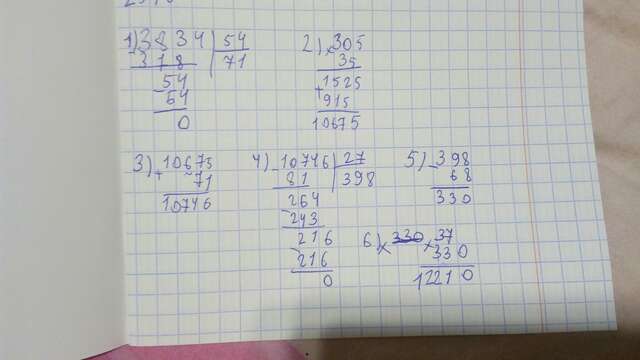 1) 3834 | 54
- 378 | 71
- 54
54
0
2) × 305
35
+ 1525
915
10675
3) + 10675
71
10746
4) - 10746 | 27
81 | 398
- 264
243
- 216
216
0
5) - 398
68
330
6) × 37
330
12210